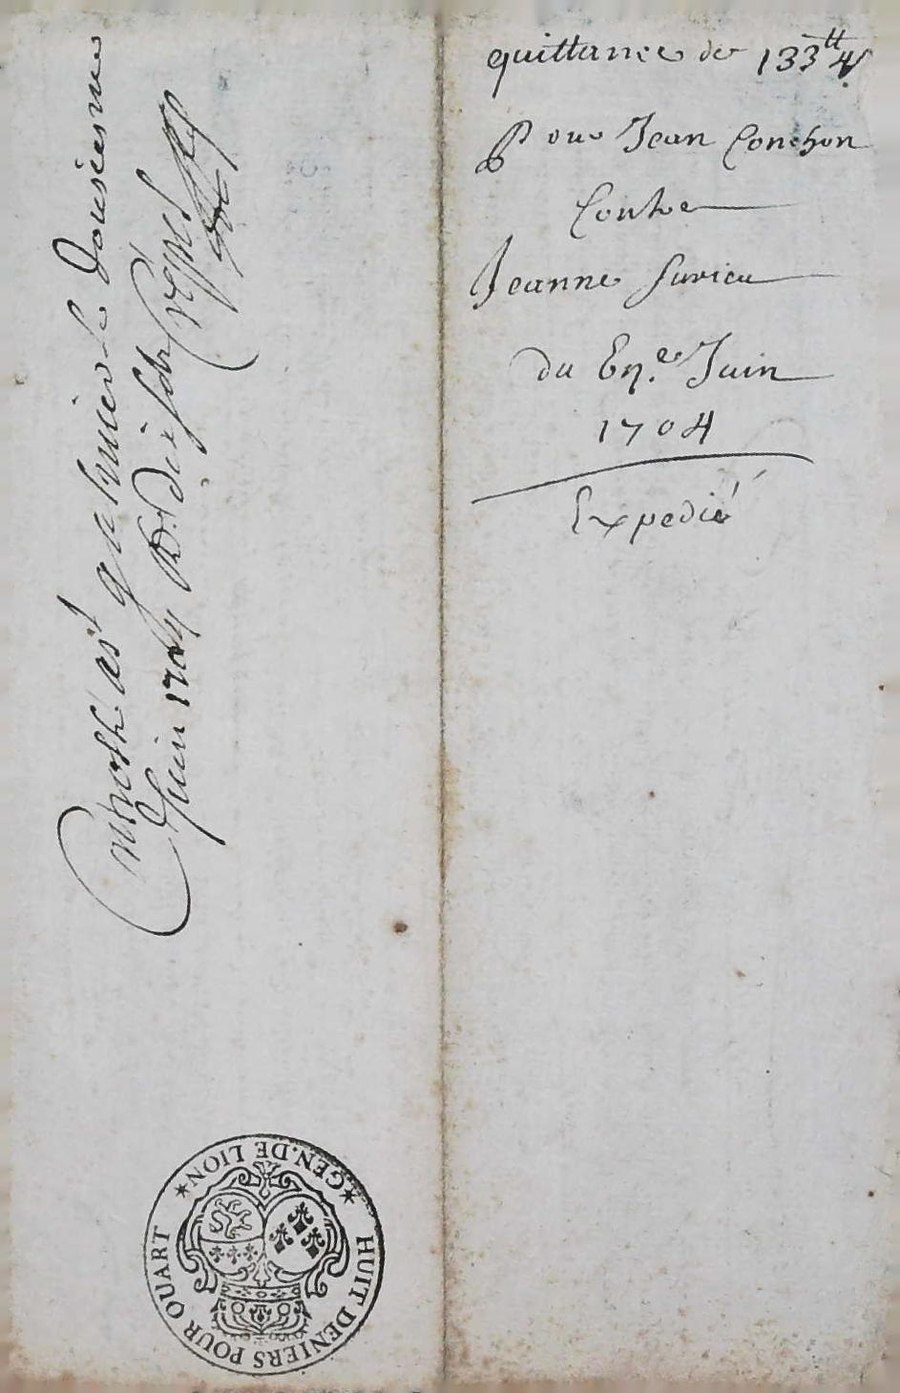 quittance de 133tt 4s
Pour Jean Conchon
Contre
Jeanne Surieu
du 6n.e Juin
1704
Expedié
Controllé as.t galmier le Dousiesme
Juin 1704 R. dix sols
GEN. DE LION
HUIT DENIERS POUR QUART